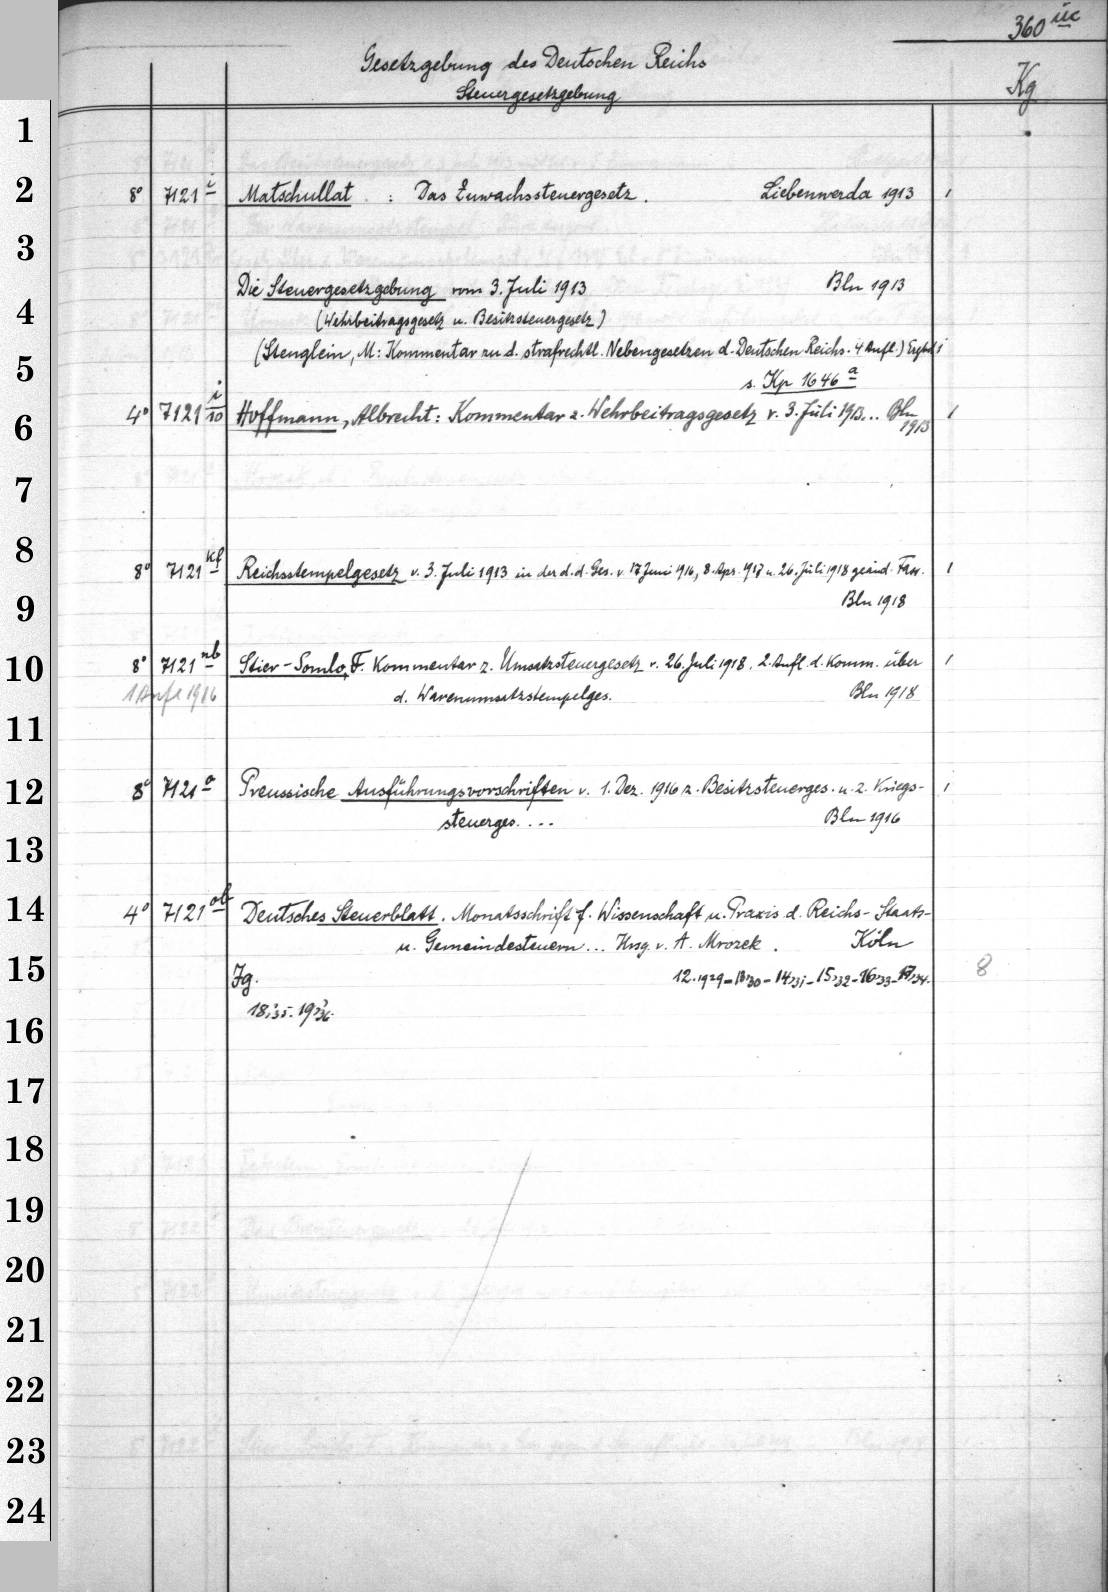 360 üc
Gesetzgebung des Deutschen Reichs
Steuergesetzgebung
Kg
1
2
8° 7121 i Matschullat : Das Zuwachssteuergesetz. Liebenwerda 1913 1
3
Die Steuergesetzgebung vom 3. Juli 1913 Bln 1913
4
(Wehrbeitragsgesetz u. Besitzsteuergesetz)
(Stenglein, M: Kommentar zu d. strafrechtl. Nebengesetzen d. Deutschen Reichs. 4 Aufl.) Ergbd 1
5
s. Kp 1646 a
4° 7121 i/10 Hoffmann, Albrecht: Kommentar z. Wehrbeitragsgesetz v. 3. Juli 1913... Bln 1913 1
6
7
8
8° 7121 kf Reichsstempelgesetz v. 3. Juli 1913 in der d. d. Ges. v. 17 Juni 916, 8. Apr. 917 u. 26. Juli 1918 geänd. Fass.
9
Bln 1918 1
10
8° 7121 nb Stier-Somlo, F. Kommentar z. Umsatzsteuergesetz v. 26. Juli 1918. 2. Aufl. d. Komm. über 1
1 Aufl 1916 d. Warenumsatzstempelges. Bln 1918
11
12
8° 7121 o Preussische Ausführungsvorschriften v. 1. Dez. 1916 z. Besitzsteuerges. u. z. Kriegs- 1
steuerges.... Bln 1916
13
14
4° 7121 ob Deutsches Steuerblatt. Monatsschrift f. Wissenschaft u. Praxis d. Reichs- Staats-
u. Gemeindesteuern... Hrsg. v. A. Mrozek. Köln
15
Jg. 12.1929-13,30-14,31-15,32-16,33-17,34. 8
18,35. 19,36.
16
17
18
19
20
21
22
23
24